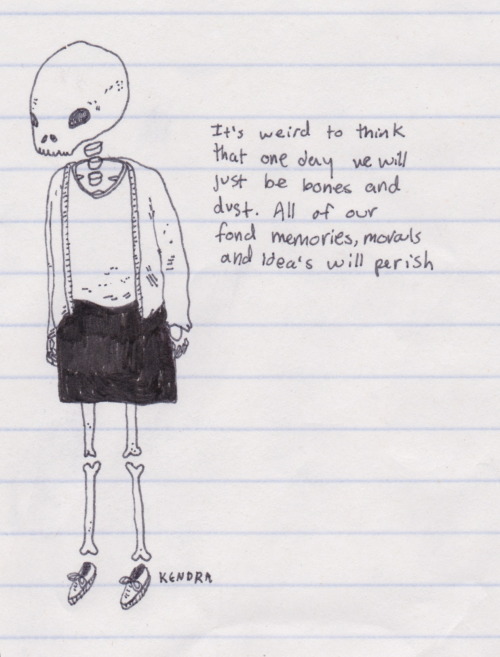 It's weird to think
that one day we will
just be bones and
dust. All of our
fond memories, morals
and idea's will perish
KENDRA